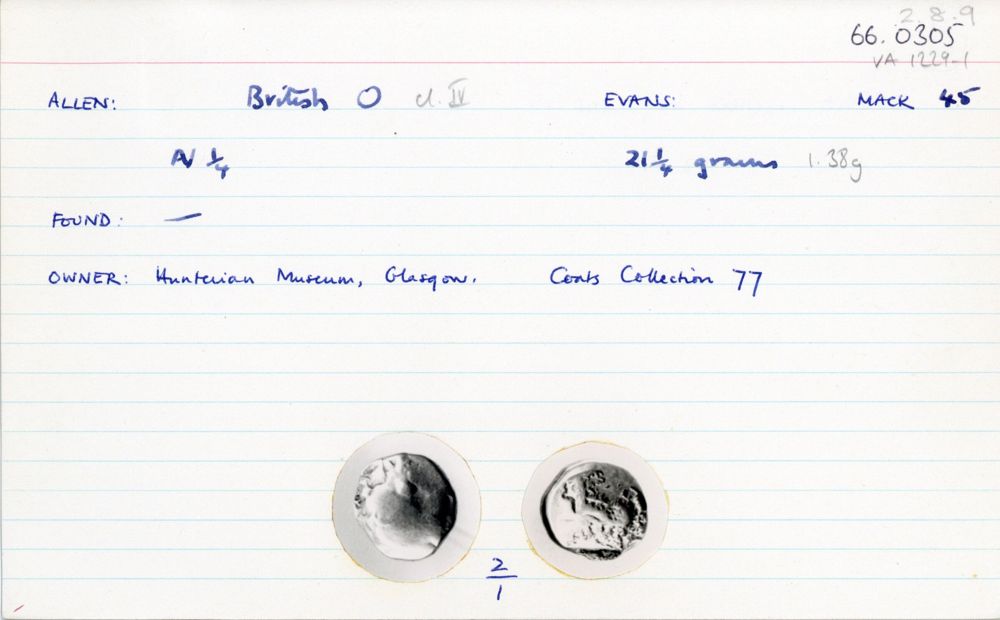 2.8.9
66.0305
VA 1229-1
ALLEN: British O cl. IV EVANS: MACK 45
AV 1/4 21 1/4 grains 1.38g
FOUND: —
OWNER: Hunterian Museum, Glasgow. Coats Collection 77
2/1